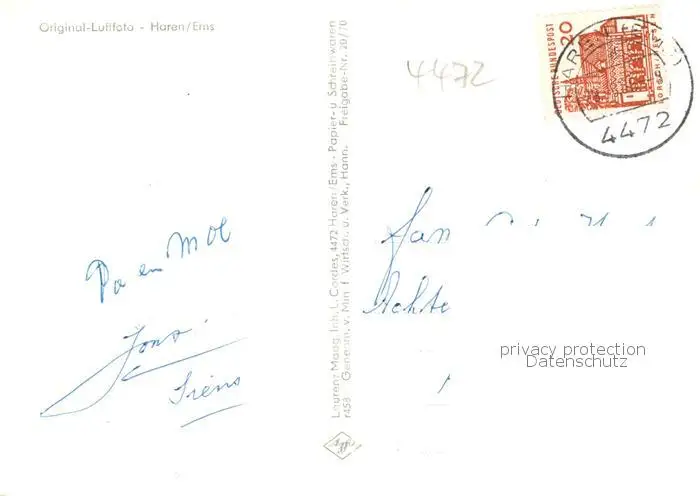 Original-Luftfoto - Haren/Ems
Pa en
Laurenz Maag. Inh. L. Cordes, 4472 Haren/Ems - Papier- u. Schreibwaren
r458 Genehm. v. Min. f. Wirtsch. u. Verk., Hann. Freigabe-Nr. 20/70
4472
DEUTSCHE BUNDESPOST
20
LORSCH HESSEN
4472
Jan
Achte
privacy protection
Datenschutz